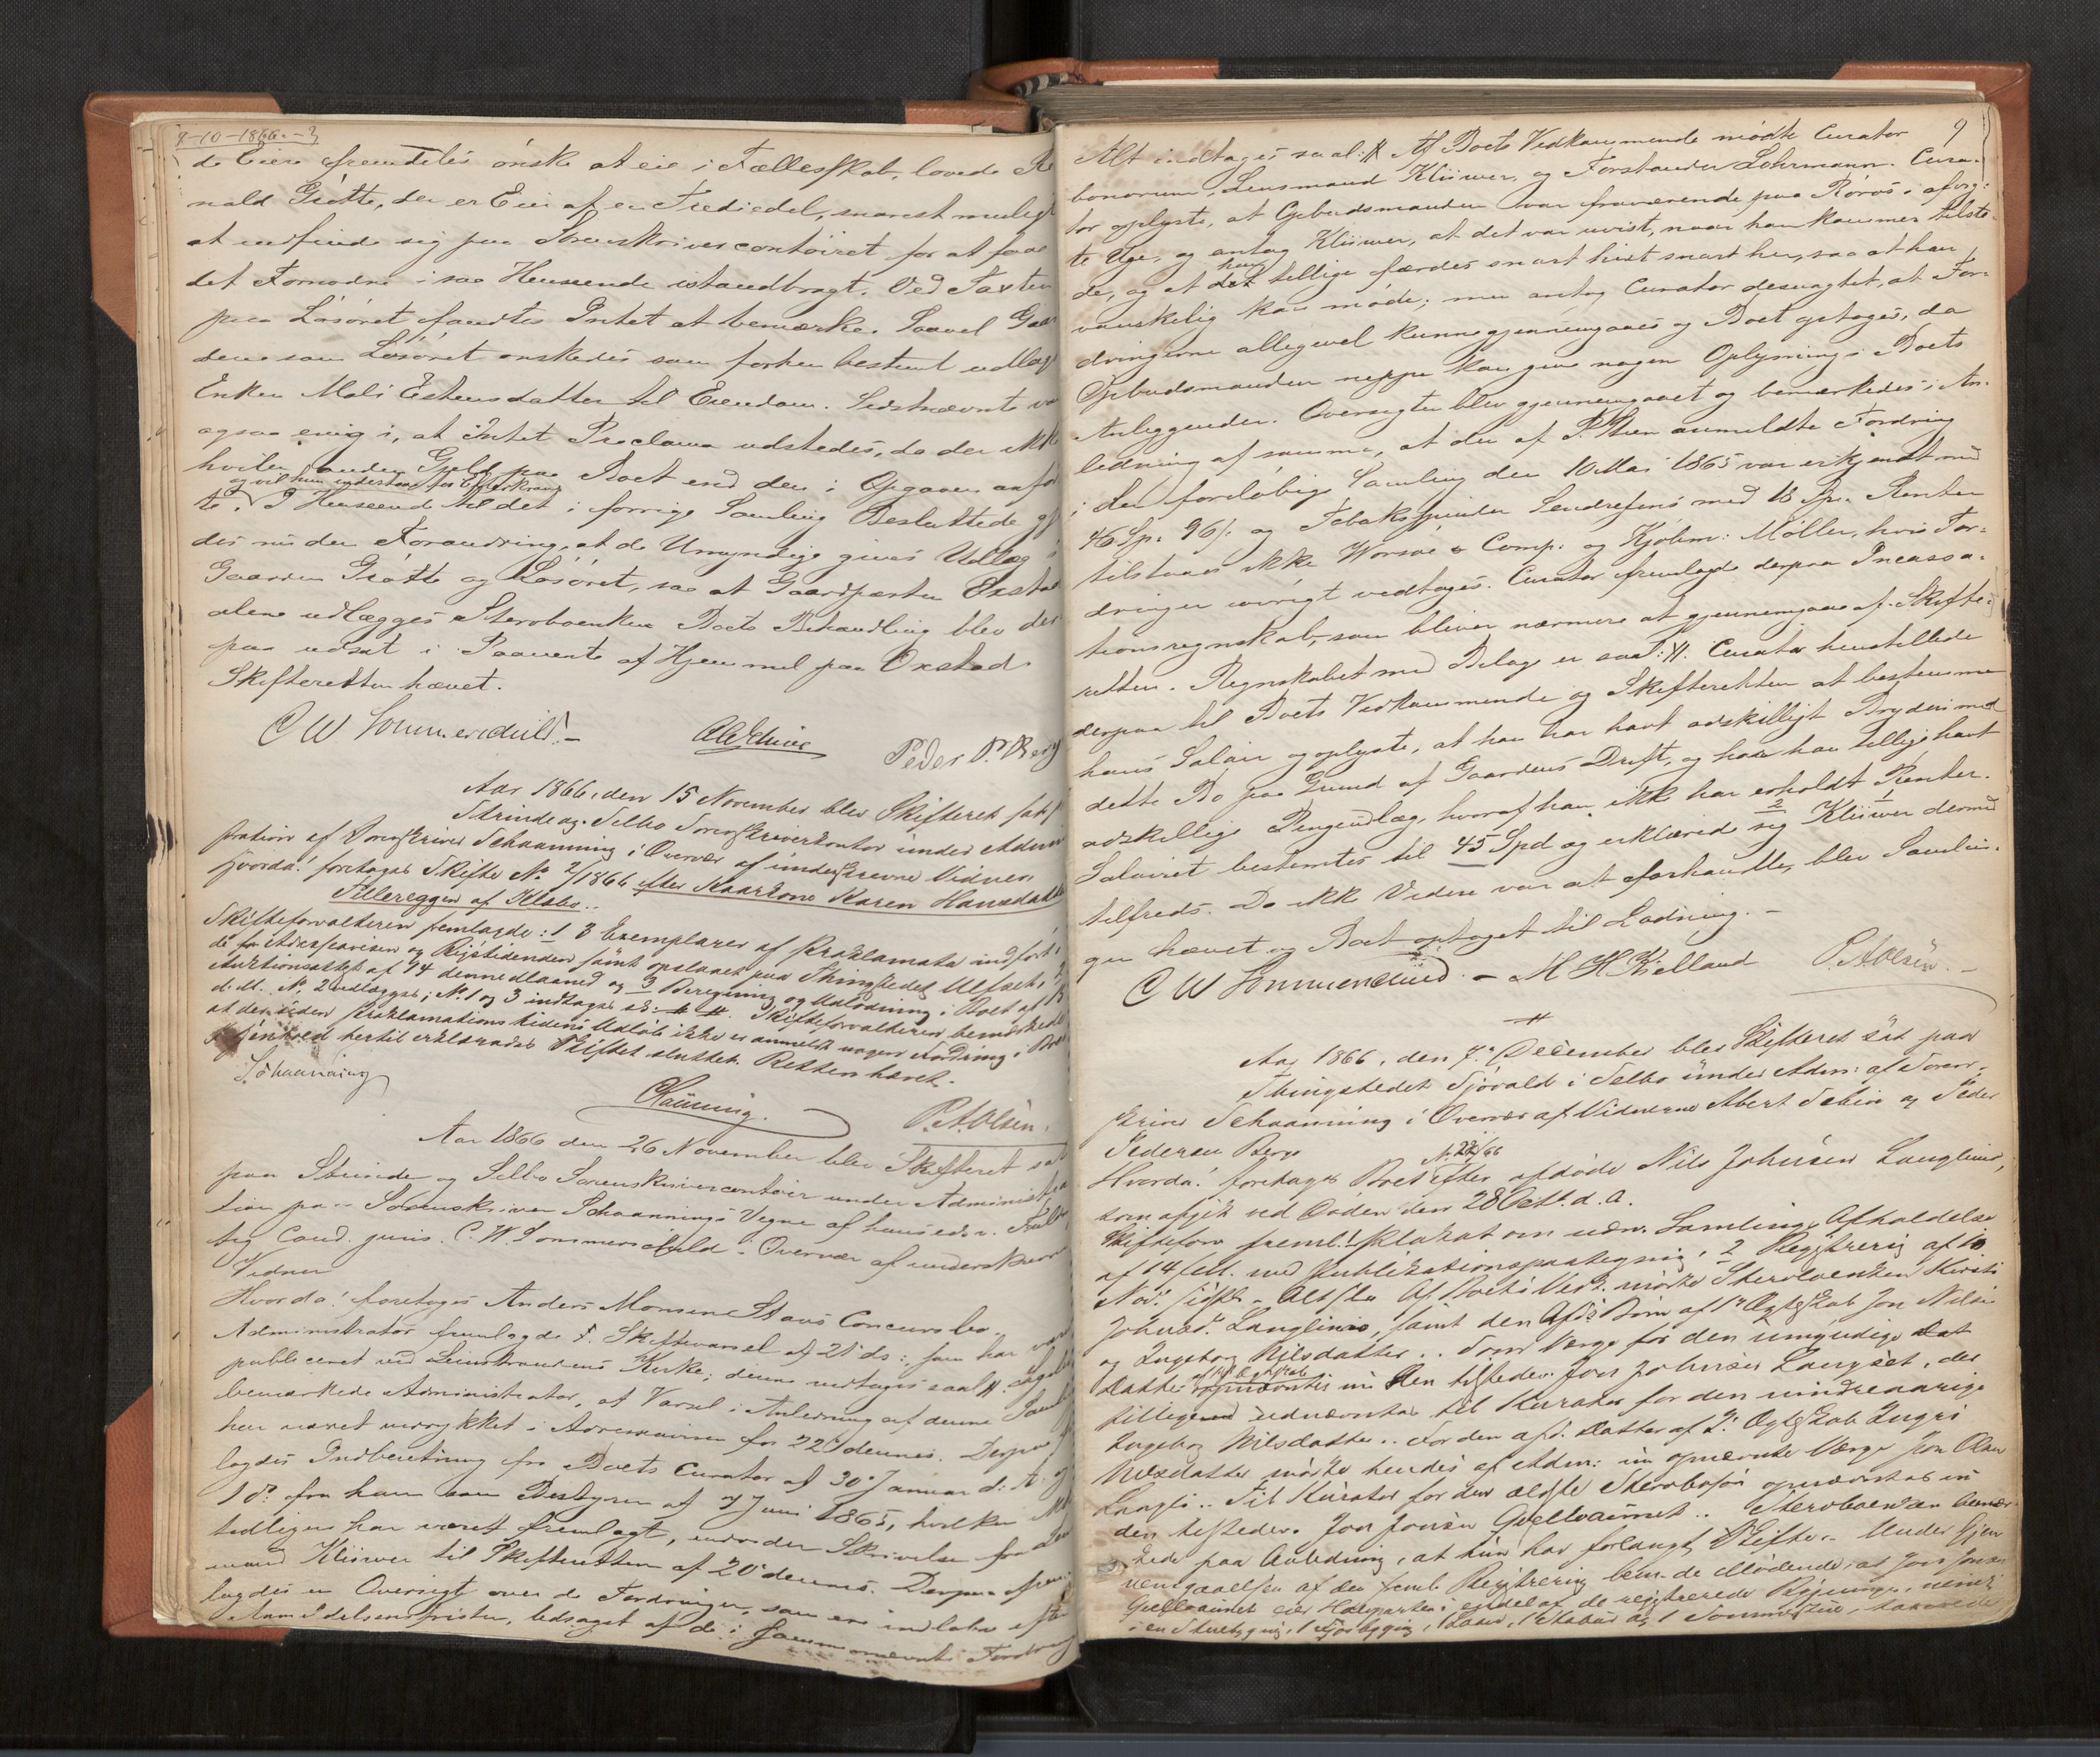 9-10-1866.-3
de Eiere fremdeles ønske at eie i Fællesskab, lovede
nald Grøtte, der er Eier af en Trediedel, snarest muligt
at indfinde sig paa Sorenskrivercontoiret for at faae
det Fornødne i saa Henseende istandbragt. Ved Taxten
paa Løsøret fandtes Intet at bemærke. Saavel Gaar
dene som Løsøret ønskedes som forhen bestemt udlagt
Enken Mali Estensdatter til Eiendom. Sidstnævnte var
ogsaa enig i, at Intet Proclama udstedes, da der ikke
hviler anden Gjeld paa Boet end den i Opgaven anfør
og vil hun indestaa for Efterkrav
te. I Henseende til det i forrige Samling Besluttede
des nu den Forandring, at de Umyndige gives Udlæg i
Gaarden Grøtte og Løsøret, saa at Gaardparten Oxstad
alene udlægges Sterboenken. Boets Behandling blev der
paa udsat i Paavente af Hjemmel paa Oxstad.
Skifteretten hævet.
C W Sommerschild.- Peder P. Berg
Aar 1866, den 15 November blev Skifteret sat p
Strinde og Selbo Sorenskriverkontor under Admini
stration af Sorenskriver Schaanning i Overvær af underskrevne Vidner
Hvorda! foretoges Skifte No 2/1866 efter Kaarkone Karen Hansdatter
Tillereggen af Klæbo..
Skifteforvalteren fremlagde: 1 3 Exemplarer af Proklamata indført i
de for Adresseavisen og Rigstidenden samt opslaaet paa Thingstedet
Auktionsattest af 14 dennemaaned og 3 Beregning og Udlodning i Boet af 13
d. M. No. 2 udlægges; No. 1 og 3 indtages sd: H. Skifteforvalteren bemærkede
at der inden Proklamationstidens Udløb ikke er anmeldt nogen Fordring i Boet
I Henhold hertil erklæredes Skiftet sluttet. Retten hævet.
Schaanning
P. A. Olsen.
Aar 1866 den 26 November blev Skifteret sat
paa Strinde og Selbo Sorenskrivercontoir under Administra
tion paa Sorenskriver Schaannings Vegne af hans edsv. Fuldm
tig Cand. juris. C. W. Sommerschild i Overvær af underskrevne
Vidner
Hvorda! foretoges Anders Monsen Stavs Concursbo.
Administrator fremlagde 1. Skiftevarsel af 21 ds: som har været
publiceret ved Leinstrandens Kirke; denne indtages saal: H.
bemærkede Administrator, at Varsel i Anledning af denne Samling
har været indrykket i Adresseavisen for 22 dennes. Derpaa
lagdes Indberetning fra Boets Curator af 30 Januar d: A. og
1 do: fra ham som Bestyrer af 7 Juni 1865, hvilken
tidligere har været fremlagt, endvidere Skrivelse fra Lens
mand Klüwer til Skifteretten af 20 dennes. Derpaa frem
lagdes en Oversigt over de Fordringer, som ere indløbne efter
Anmeldelsesfristen, ledsaget af de i samme nævnte Fordring
9
Alt indtages saal: H Af Boets Vedkommende mødte Curator
bonorum, Lensmand Klüwer, og Forstander Lohrmann. Cura-
tor oplyste, at Opbudsmanden var fraværende paa Røros i afvig-
te Uge, og antog Klüwer, at det var uvist, naar han kommer tilste-
han
de, og at det tillige færdes snart hist snart her, saa at han
vanskelig kan møde; men antog Curator desuagtet, at For-
dringerne allegevel kunne gjennemgaaes og Boet optages, da
Opbudsmanden neppe kan give nogen Oplysning i Boets
Anliggender. Oversigten blev gjennemgaaet og bemærkedes i An-
ledning af samme, at den af P. Sten anmeldte Fordring
i den foreløbige Samling den 10 Mai 1865 var erkjendt med
46 Sp. 96 s. og Tobaksspinder Sendresens med 18 Sp. Renter
tilstaaes ikke Worsøe & Comp: og Kjøbm: Møller, hvis For-
dringer iøvrigt vedtages. Curator fremlagde derpaa Incassa-
tionsregnskab, som bliver nærmere at gjennemgaae af Skifte-
retten. Regnskabet med Bilage er saal: H. Curator henstillede
derpaa til Boets Vedkommende og Skifteretten at bestemme
hans Salair og oplyste, at han har havt adskilligt Bryderi med
dette Bo paa Grund af Gaardens Drift, og har han tillige havt
adskillige Pengeudlæg, hvoraf han ikke har erholdt Renter.
Salairet bestemtes til 45 Spd og erklærede sig Klüwer dermed
tilfreds. Da ikke Videre var at forhandle, blev Samlin-
gen hævet og Boet optaget til Lodning. -
C W Sommerschild. - M H Kielland P. A. Olsen. -
Aar 1866, den 7de December blev Skifteret sat paa
Thingstedet Fjørvald i Selbo under Adm: af Soren-
skriver Schaanning i Overvær af Vidnerne Albert Selvin og Peder
Pedersen Berge
No. 22/66
Hvorda! foretoges Boet efter afdøde Nils Johnsen Langlimo,
som afgik ved Døden den 28 Oct. d. A.
Skifteforv. freml: 1 Plakat om nærv. Samlings Afholdelse
af 14 f. M. med Publikationspaategning, 2 Registrering af 10
Nov. sidstl. - Af Boets Vedk. mødte Sterboenken Kirsti
Johnsd. Langlimo, samt den Afd: Børn af 1ste Ægteskab Jon Nilsen
og Ingeborg Nilsdatter.. Som Værge for den umyndige Dat
af Ægteskab
Datter opnævntes nu den tilstedev. Jon Johnsen Langset, der
tillige udnævntes til Kurator for den mindreaarige
Ingeborg Nilsdatter.. For den afd. Datter af 2. Ægteskab Ingri
Nilsdatter mødte hendes af Adm: nu opnævnte Værge Jon Olsen
Langli.. Til Kurator for den ældste Sterboson opnævntes nu
den tilstedev. Jon Jonsen Qvellvaunet.. Sterboenken bemær
kede paa Anledning, at hun har forlangt Skifte.. Under Gjen
nemgaaelsen af den freml. Registrering bem. de Mødende, at Jon Jonsen
Qvellvaunet eier Halvparten i endel af de registrerede Bygninger, nemlig
i en Stuebygning, 1 Fjøsbygning, 1 Lade, 1 Stabur og 1 Sommerfjøs,